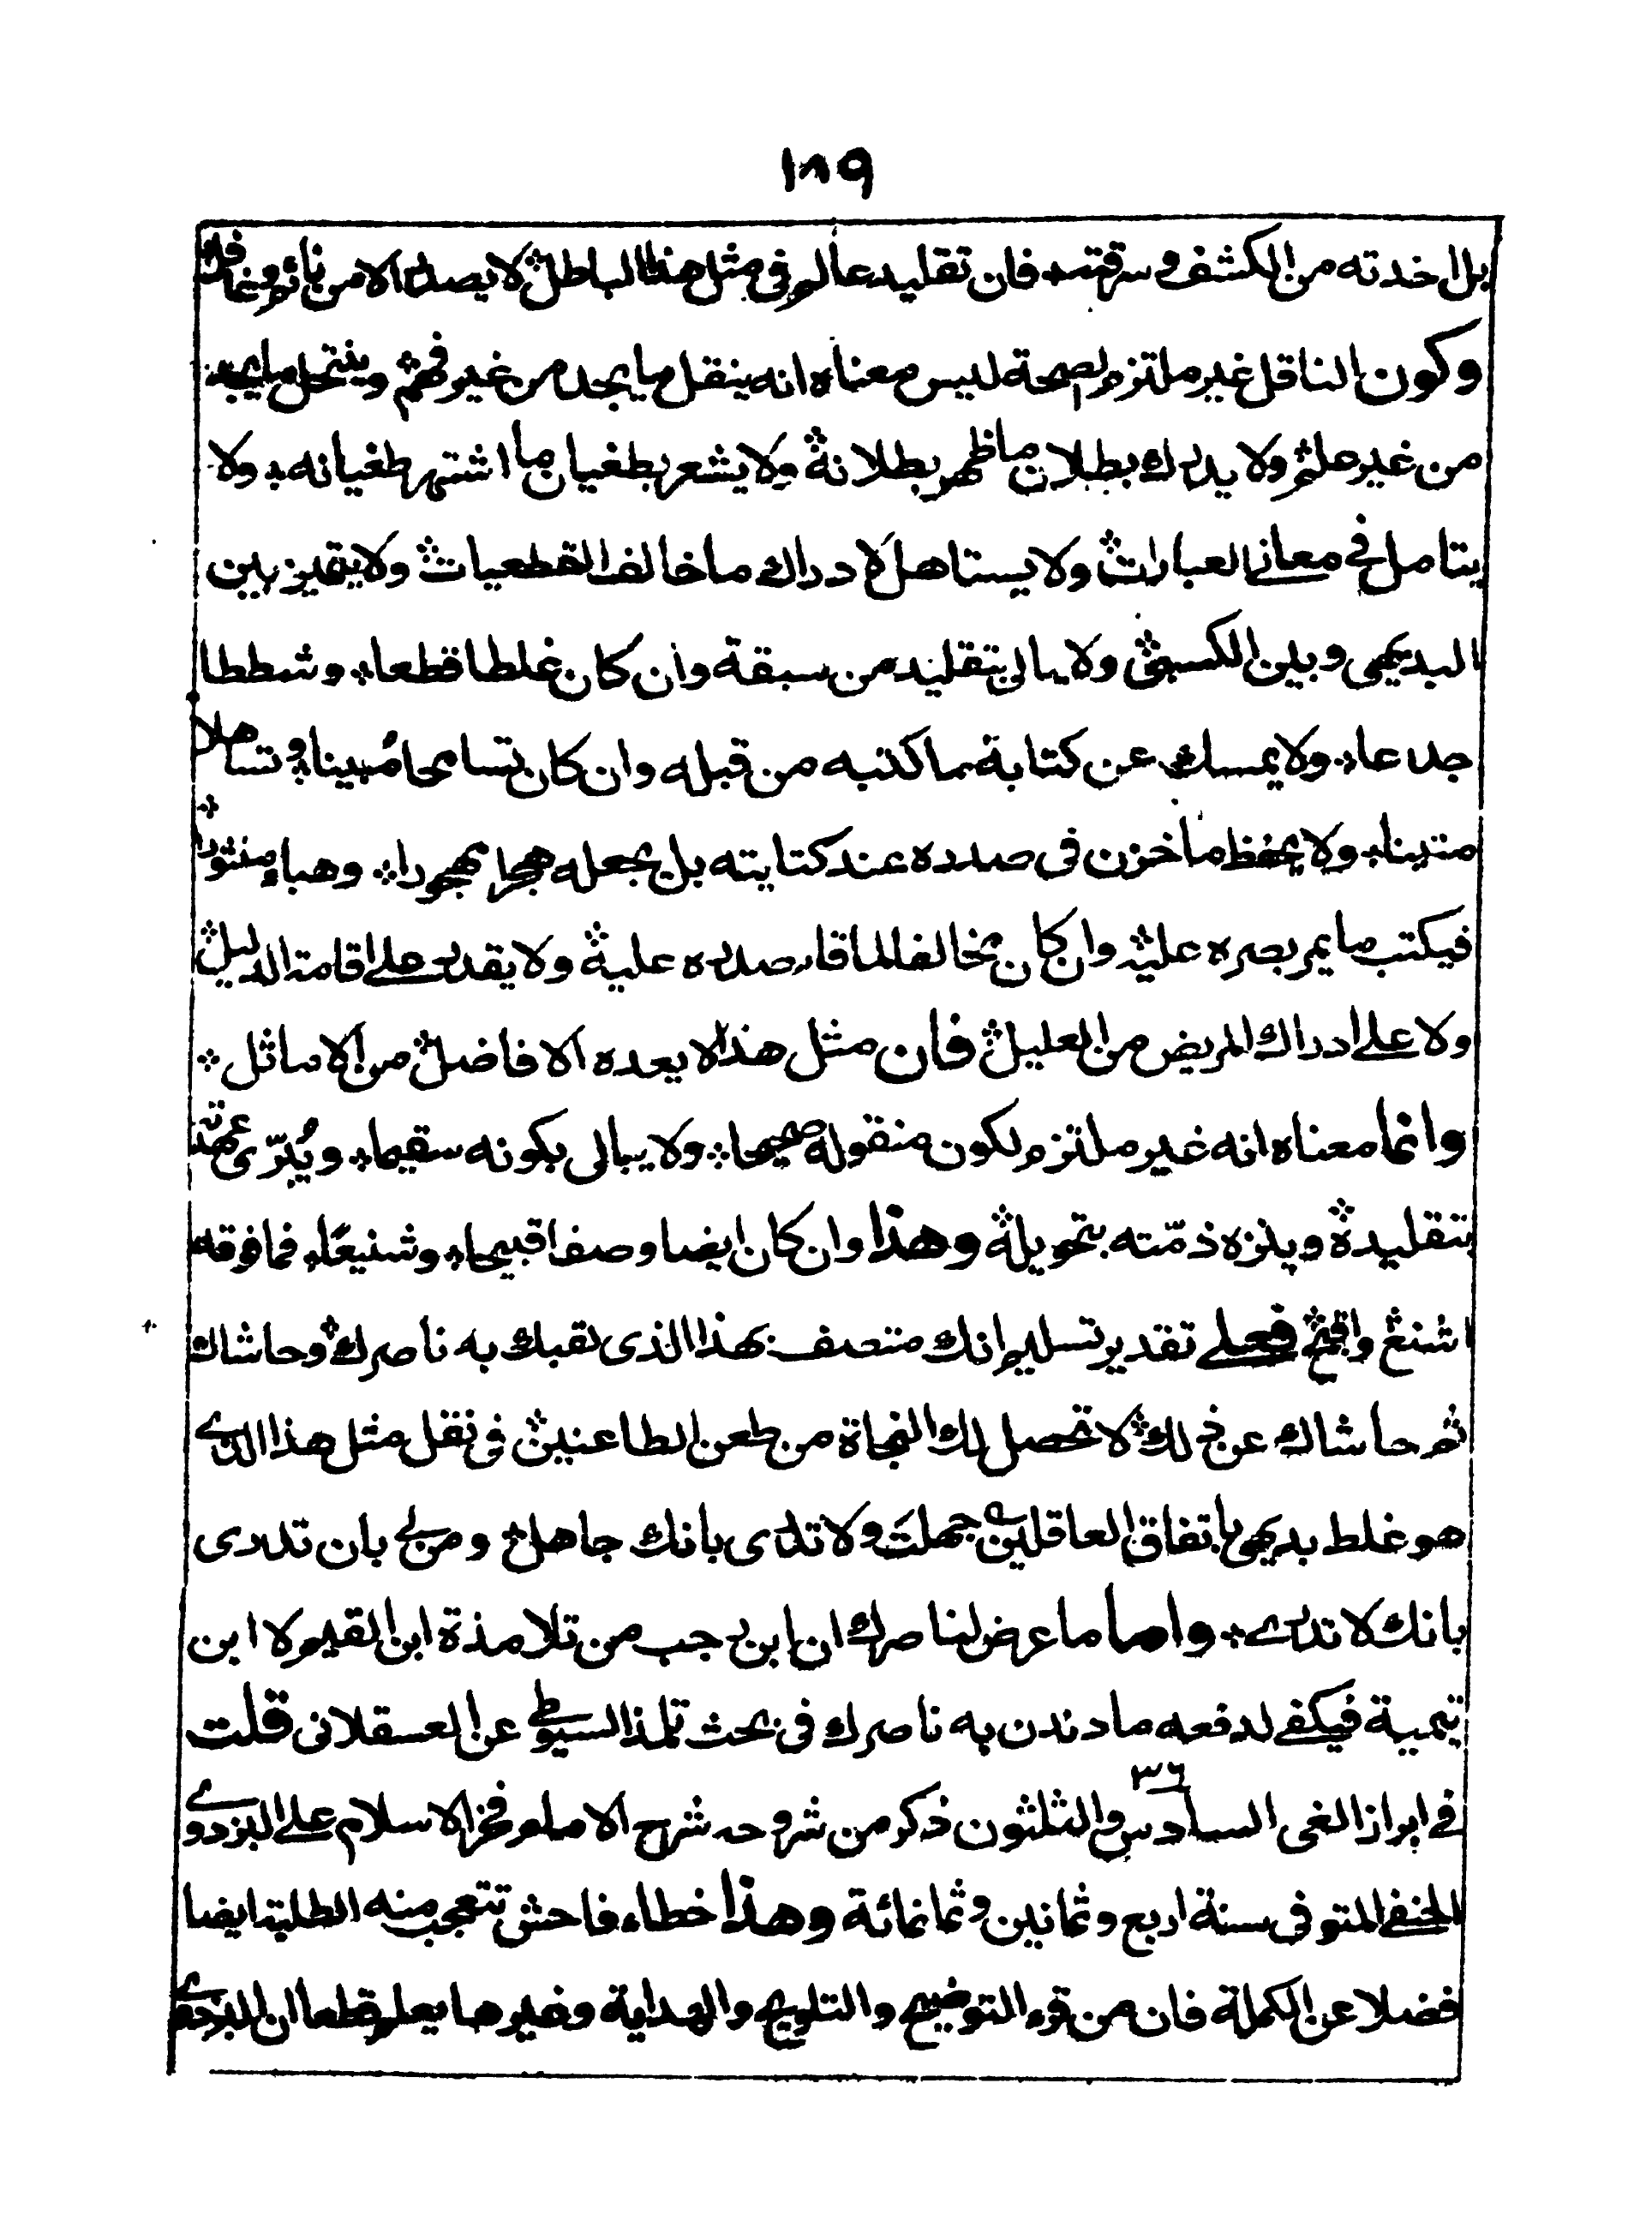 ١٨٩
بل اخدته من الكشف وسرقته فان تقليد عالم في مثل هذا الباطل لا يصدر الا من نائم وغافل
وكون الناقل غير ملتزم لصحة ليس معناه انه ينقل ما يجد من غير فهم وينتحل ما يجد
من غير علم ولا يدرك بطلان ما ظهر بطلانه ولا يشعر بطغيان ما اشتهر طغيانه ولا
يتامل في معاني العبارات ولا يستاهل لادراك ما خالف القطعيات ولا يتميز بين
البديهي وبين الكسبي ولا يبالي بتقليد من سبقة وان كان غلطا قطعا وشططا
جدعا ولا يمسك عن كتابة ما كتبه من قبله وان كان تسامحا مُبينا وتساهلا
متينا ولا يحفظ ما خزن في صدره عند كتابته بل يجعله هجرا مهجورا وهباء منثورا
فيكتب ما يمر بصره عليه وان كان مخالفا لما قام صدره عليه ولا يقدر على اقامة الدليل
ولا على ادراك المريض من العليل فان مثل هذا لا يعده الافاضل من الاماثل
وانما معناه انه غير ملتزم لكون منقوله صحيحا ولا يبالي بكونه سقيما ويُبرّئ عهدته
بتقليده وينزه ذمّته بتحويله وهذا وان كان ايضا وصفا قبيحا وشنيعًا فما فوقه
اشنع واقبح فعلى تقدير تسليم انك متصف بهذا الذى لقبك به ناصرك وحاشاك
ثم حاشاك عن ذلك لا تحصل لك النجاة من طعن الطاعنين في نقل مثل هذا الذي
هو غلط بديهي باتفاق العاقلين جهلت ولا تدرى بانك جاهل ومن لي بان تدرى
بانك لا تدرى واما ما عرض لناصرك ان ابن رجب من تلامذة ابن القيم لا ابن
تيمية فيكفي لدفعه ما دندن به ناصرك في بحث تلمذ السيوطي عن العسقلانى قلت
في ابراز الغى السادس والثلثون ذكر من شروحه شرح الامام فخر الاسلام على البزدوي
٣٦
الحنفي المتوفى سنة اربع وثمانين وثمانمائة وهذا خطاء فاحش تتعجب منه الطلبة ايضا
فضلا عن الكملة فان من قرء التوضيح والتلويح والهداية وغيرها يعلم قطعا ان البزدوي